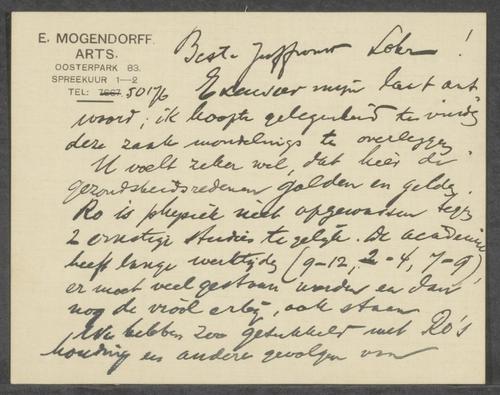 E. MOGENDORFF.
ARTS.
OOSTERPARK 83.
SPREEKUUR 1—2
TEL: 7667. 50176
Beste Juffrouw Lohr!
Excuseer mijn laat ant
woord; ik hoopte gelegenheid te vinden
deze zaak mondelings te overleggen
U voelt zeker wel, dat hier de
gezondheidsredenen golden en gelden.
Ro is physiek niet opgewassen tegen
2 ernstige studies tegelijk. De academie
heeft lange werktijden (9—12, 2—4, 7—9),
er moet veel gestaan worden en dan
nog de viool erbij, ook staan
We hebben zoo getukkeld met Ro's
houding en andere gevolgen van